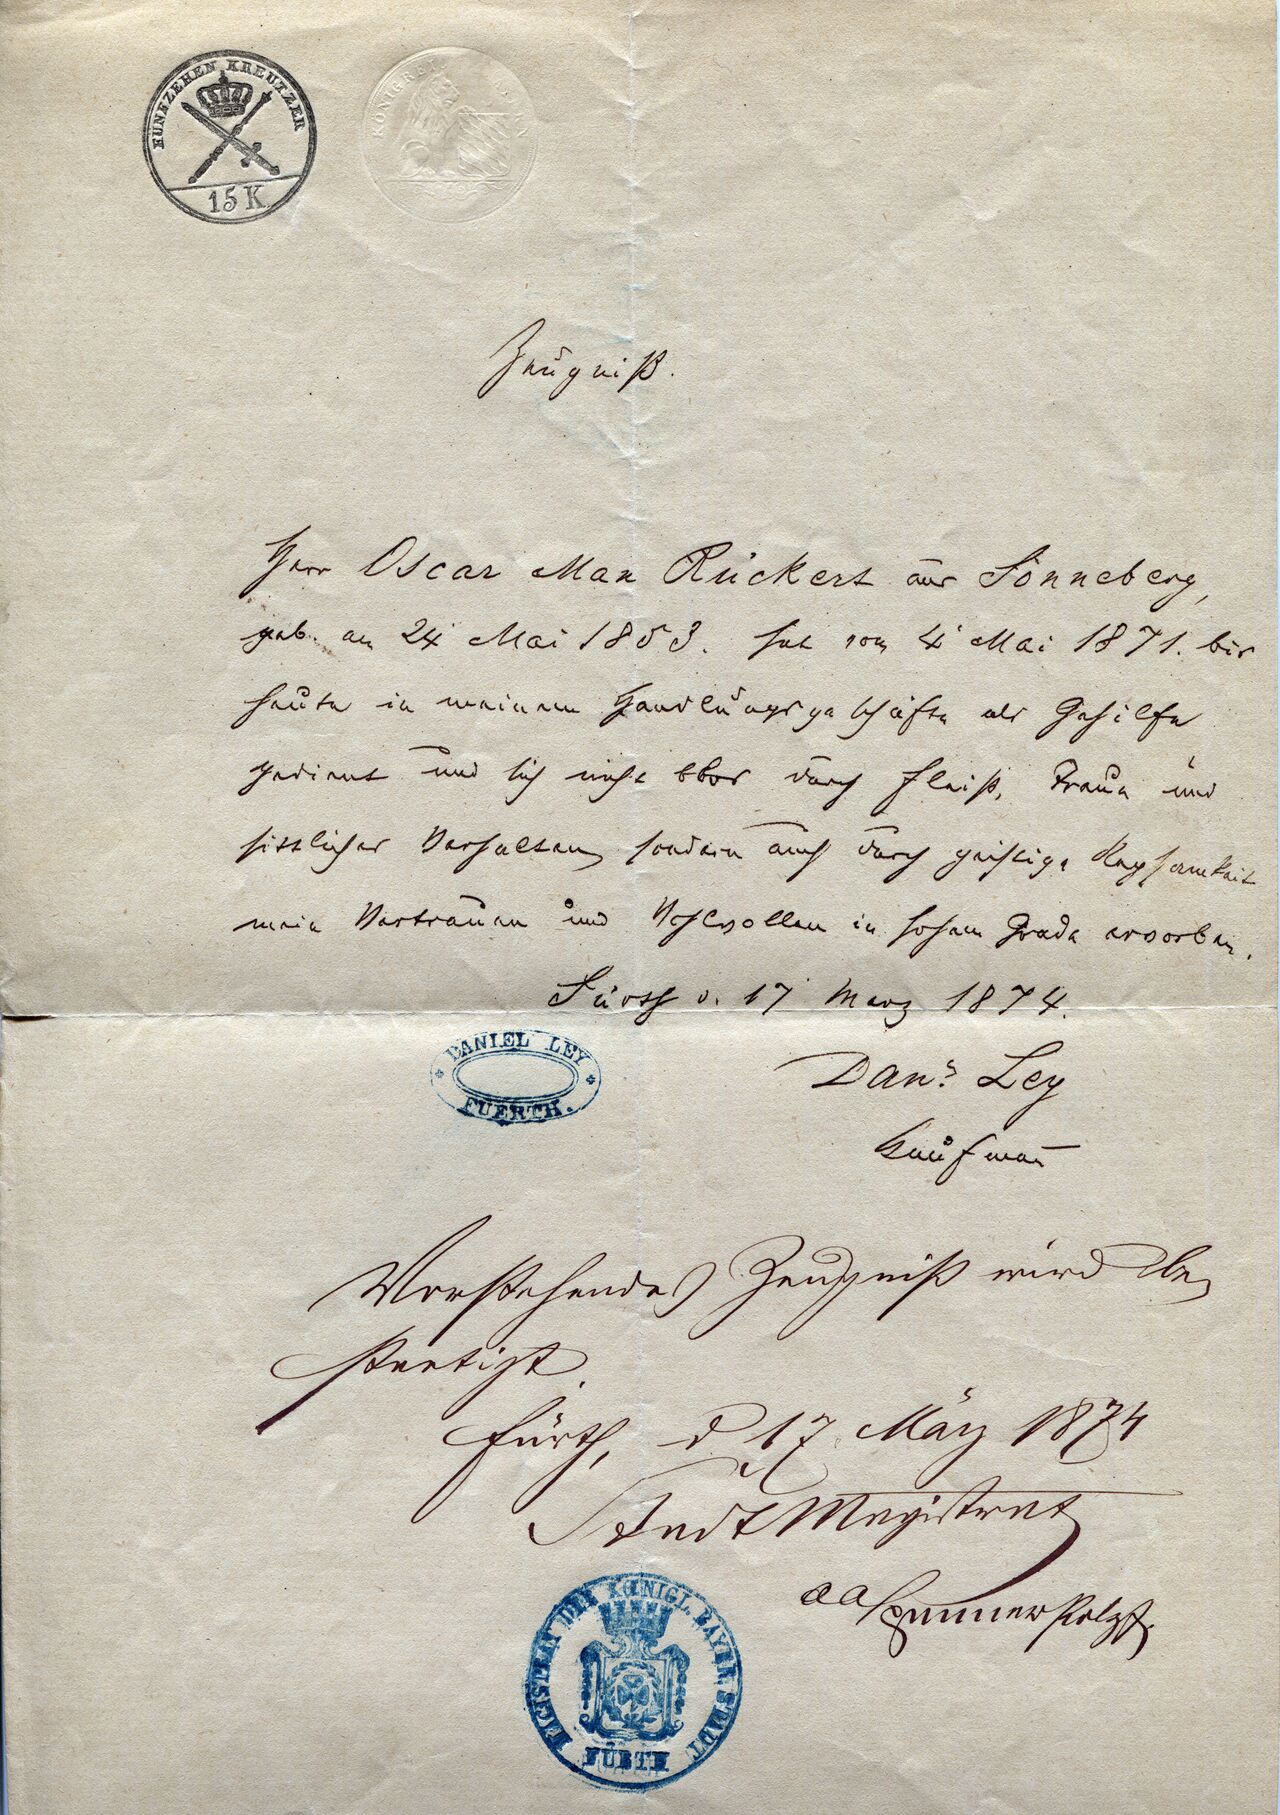 FÜNFZEHEN KREUTZER
15 K
KÖNIGREICH BAYERN
Zeugniß.
Herr Oscar Max Rückert aus Sonneberg,
geb. am 24 Mai 1853. hat vom 4 Mai 1871. bis
heute in meinem Handlungsgeschäfte als Gehilfe
gedient und sich nicht blos durch Fleiß, Treue und
sittliches Verhalten, sondern auch durch geistige Regsamkeit
mein Vertrauen und Wohlwollen in hohem Grade erworben.
Fürth d. 17 Merz 1874.
DANIEL LEY
FUERTH.
Danl. Ley
Kaufman̄
Vorstehendes Zeugniß wird be
staetigt.
Fürth, d 17 März 1874
StadtMagistrat
MAGISTRAT DER KÖNIGL. BAYER. STADT
FÜRTH